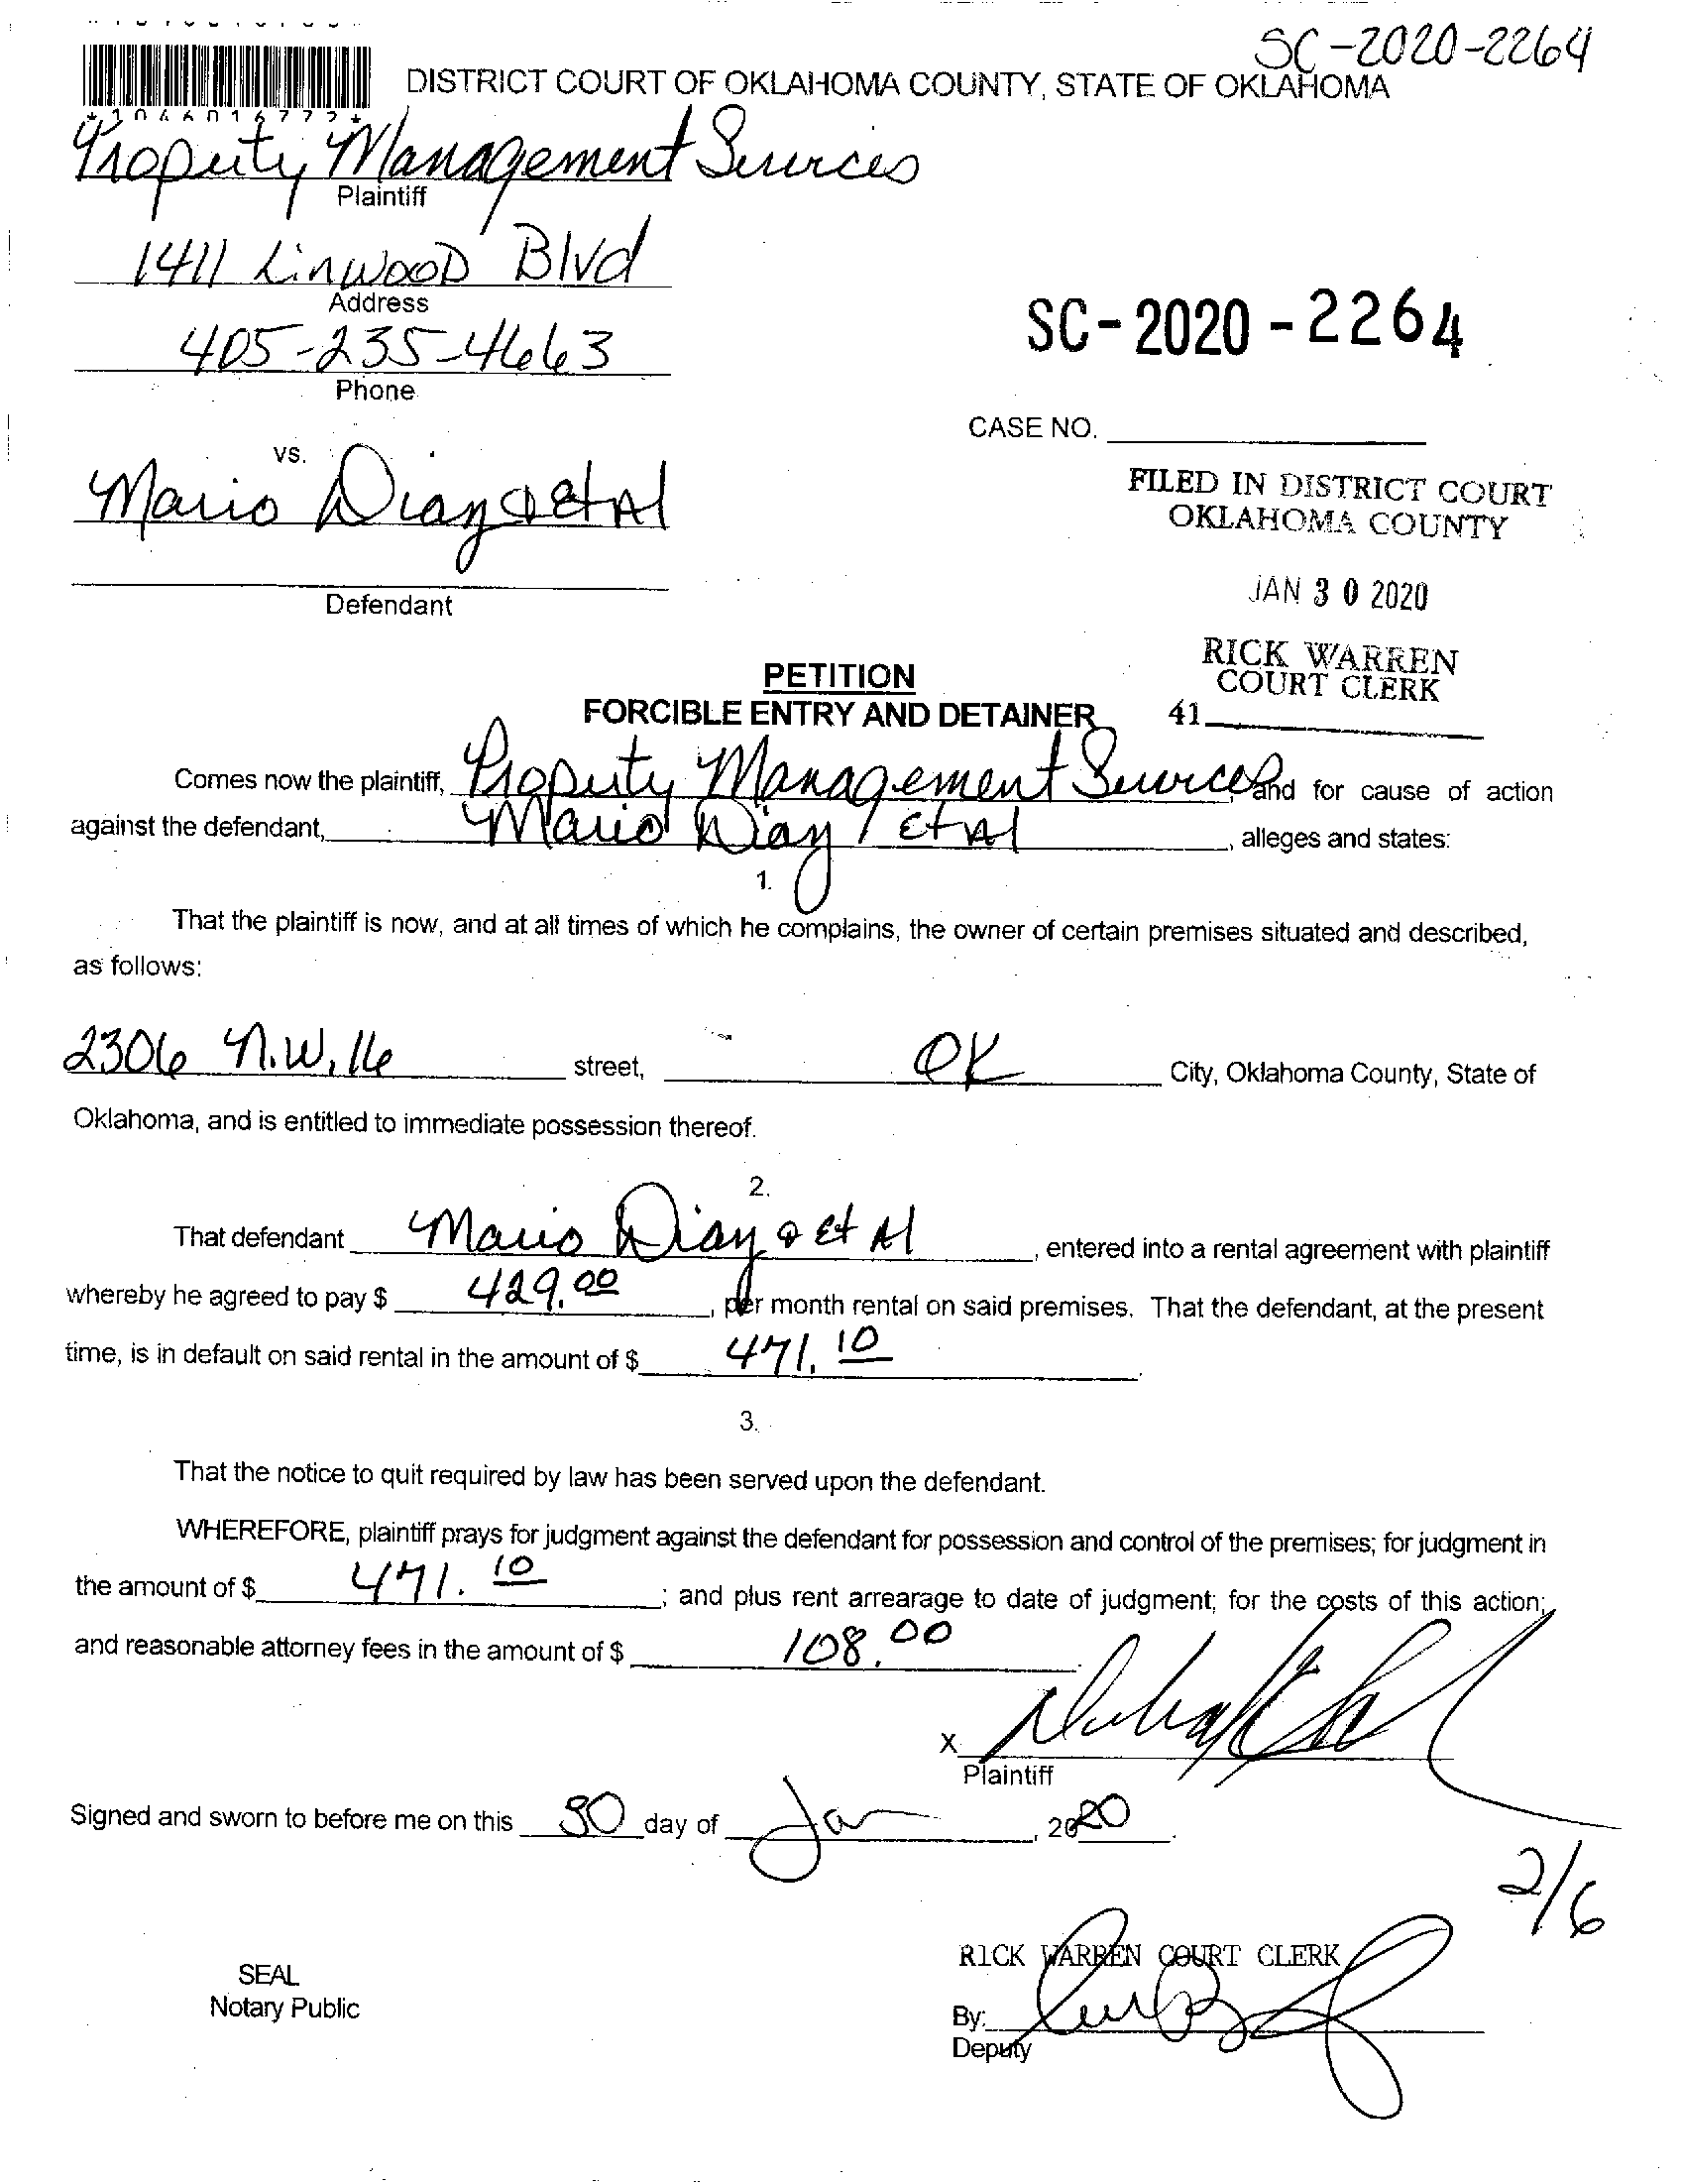 SC-2020-2264
DISTRICT COURT OF OKLAHOMA COUNTY, STATE OF OKLAHOMA
*1046016772*
Property Management Services
Plaintiff
1411 Linwood Blvd
Address
405-235-4663
Phone
SC-2020-2264
CASE NO.
vs.
Mario Diaz & et Al
Defendant
FILED IN DISTRICT COURT
OKLAHOMA COUNTY
JAN 30 2020
RICK WARREN
COURT CLERK
41
PETITION
FORCIBLE ENTRY AND DETAINER
Comes now the plaintiff, Property Management Services, and for cause of action
against the defendant, Mario Diaz / et Al, alleges and states:
1.
That the plaintiff is now, and at all times of which he complains, the owner of certain premises situated and described,
as follows:
2306 N.W. 16 street, OK City, Oklahoma County, State of
Oklahoma, and is entitled to immediate possession thereof.
2.
That defendant Mario Diaz & Et Al, entered into a rental agreement with plaintiff
whereby he agreed to pay $ 429.00, per month rental on said premises. That the defendant, at the present
time, is in default on said rental in the amount of $ 471.10.
3.
That the notice to quit required by law has been served upon the defendant.
WHEREFORE, plaintiff prays for judgment against the defendant for possession and control of the premises; for judgment in
the amount of $ 471.10; and plus rent arrearage to date of judgment; for the costs of this action;
and reasonable attorney fees in the amount of $ 108.00.
X
Plaintiff
Signed and sworn to before me on this 30 day of Jan, 2020.
2/6
SEAL
Notary Public
RICK WARREN COURT CLERK
By:
Deputy